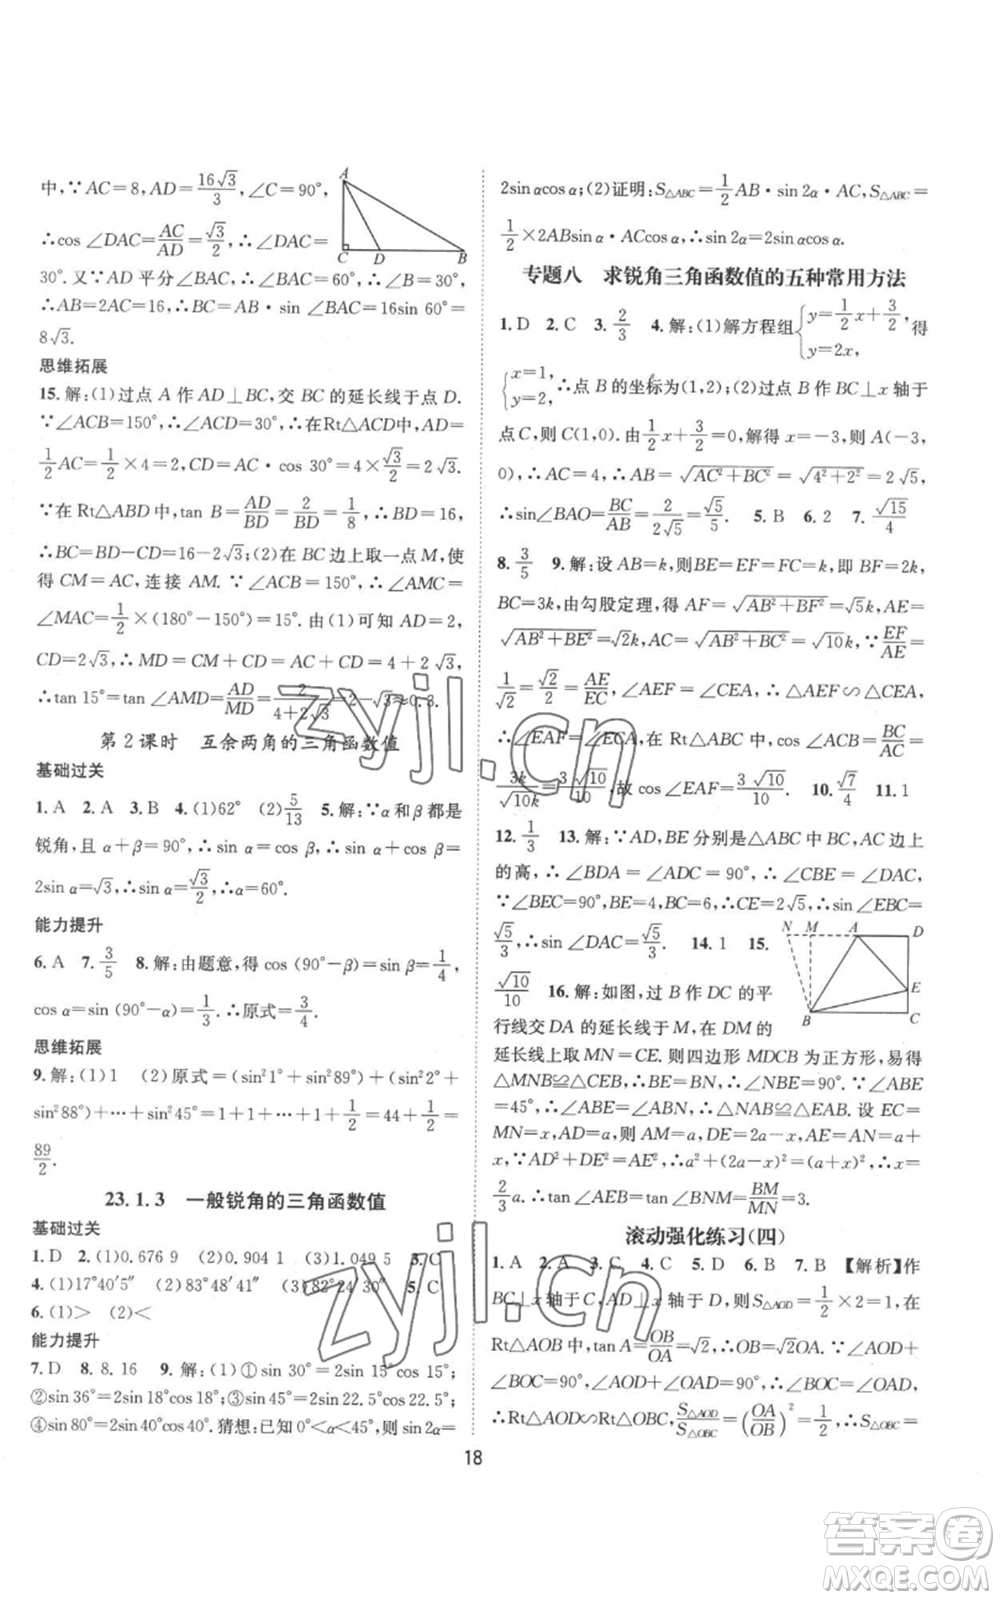 中,∵AC=8,AD=16√3/3,∠C=90°,
∴cos ∠DAC=AC/AD=√3/2,∴∠DAC=
30°.又∵AD 平分∠BAC,∴∠BAC=60°,∴∠B=30°,
∴AB=2AC=16,∴BC=AB·sin ∠BAC=16·sin 60°=
8√3.
思维拓展
15.解:(1)过点 A 作 AD⊥BC,交 BC 的延长线于点 D.
∵∠ACB=150°,∴∠ACD=30°,∴在Rt△ACD 中,AD=
1/2AC=1/2×4=2,CD=AC·cos 30°=4×√3/2=2√3.
∵在 Rt△ABD 中,tan B=AD/BD=2/BD=1/8,∴BD=16,
∴BC=BD-CD=16-2√3;(2)在 BC 边上取一点 M,使
得 CM=AC,连接 AM.∵∠ACB=150°,∴∠AMC=
∠MAC=1/2×(180°-150°)=15°.由(1)可知 AD=2,
CD=2√3,∴MD=CM+CD=AC+CD=4+2√3,
∴tan 15°=tan ∠AMD=AD/MD=2/(4+2√3)=2-√3≈0.3.
第 2 课时 互余两角的三角函数值
基础过关
1.A 2.A 3.B 4.(1)62° (2)5/13 5.解:∵α和β都是
锐角,且 α+β=90°,∴sin α=cos β,∴sin α+sin α=
2sin α=√3,∴sin α=√3/2,∴α=60°.
能力提升
6.A 7.3/5 8.解:由题意,得 cos (90°-β)=sin β=1/4,
sin (90°-α)=cos α=1/3.∴原式=3/4.
思维拓展
9.解:(1)1 (2)原式=(sin²1°+sin²89°)+(sin²2°+
sin²88°)+…+sin²45°=1+1+…+1+1/2=44+1/2=
89/2.
23.1.3 一般锐角的三角函数值
基础过关
1.D 2.(1)0.676 9 (2)0.904 1 (3)1.089 5 3.C
4.(1)17°40′5″ (2)83°48′41″ (3)82°24′30″ 5.C
6.(1)> (2)<
能力提升
7.D 8.8.16 9.解:(1)①sin 30°=2sin 15°cos 15°;
②sin 36°=2sin 18°cos 18°;③sin 45°=2sin 22.5°cos 22.5°;
④sin 80°=2sin 40°cos 40°.猜想:已知 0°<α<45°,则 sin 2α=
2sin αcos α;(2)证明:S△ABC=1/2AB·sin 2α·AC,S△ABC=
1/2×2ABsin α·ACcos α,∴sin 2α=2sin αcos α.
专题八 求锐角三角函数值的五种常用方法
1.D 2.C 3.2/3 4.解:(1)解方程组{y=1/2x+3/2, y=2x,得
{x=1, y=2,∴点 B 的坐标为(1,2);(2)过点 B 作 BC⊥x 轴于
点C,则 C(1,0).由1/2x+3/2=0,解得 x=-3,则 A(-3,
0),∴AC=4,∴AB=√(AC²+BC²)=√(4²+2²)=2√5,
∴sin∠BAO=BC/AB=2/(2√5)=√5/5. 5.B 6.2 7.√15/4
8.3/5 9.解:设 AB=k,则BE=EF=FC=k,即 BF=2k,
BC=3k,由勾股定理,得 AF=√(AB²+BF²)=√5k,AE=
√(AB²+BE²)=√2k,AC=√(AB²+BC²)=√10k,∵EF/AE=
1/√2=√2/2=AE/EC,∠AEF=∠CEA,∴△AEF∽△CEA,
∴∠EAF=∠ECA,在 Rt△ABC 中,cos ∠ACB=BC/AC=
3k/√10k=3√10/10,故 cos∠EAF=3√10/10. 10.√7/4 11.1
12.1/3 13.解:∵AD,BE分别是△ABC 中BC,AC 边上
的高,∴∠BDA=∠ADC=90°,∴∠DAC=∠EBC,
∵∠BEC=90°,BE=4,BC=6,∴CE=2√5,sin∠EBC=
√5/3,∴sin ∠DAC=√5/3. 14.1 15.
√10/10 16.解:如图,过 B 作 DC 的平
行线交 DA 的延长线于 M,在 DM 的
延长线上取 MN=CE.则四边形 MDCB 为正方形,易得
△MNB≌△CEB,∴BE=BN,∠NBE=90°.∵∠ABE
=45°,∴∠ABE=∠ABN,∴△NAB≌△EAB.设 EC=
MN=x,AD=a,则 AM=a,DE=2a-x,AE=AN=a+
x,∵AD²+DE²=AE²,∴a²+(2a-x)²=(a+x)²,∴x=
2/3a.∴tan ∠EBC=tan ∠NBM,∴tan N=BM/MN=3.
滚动强化练习(四)
1.A 2.A 3.B 4.C 5.D 6.B 7.B 【解析】作
BC⊥x 轴于 C,AD⊥x 轴于 D,则S△AOD=1/2×2=1,在
Rt△AOB 中,tan A=OB/OA=√2,∴OB=√2OA,∵∠AOD
+∠BOC=90°,∠AOD+∠OAD=90°,∴∠BOC=∠OAD,
∴Rt△AOD∽Rt△OBC,S△AOD/S△OBC=(OA/OB)²=1/2,∴S△OBC=
18
A
C
D
B
N
M
A
D
E
B
C
zyjl.cn
zyjl.cn
答案圈
MXQE.COM